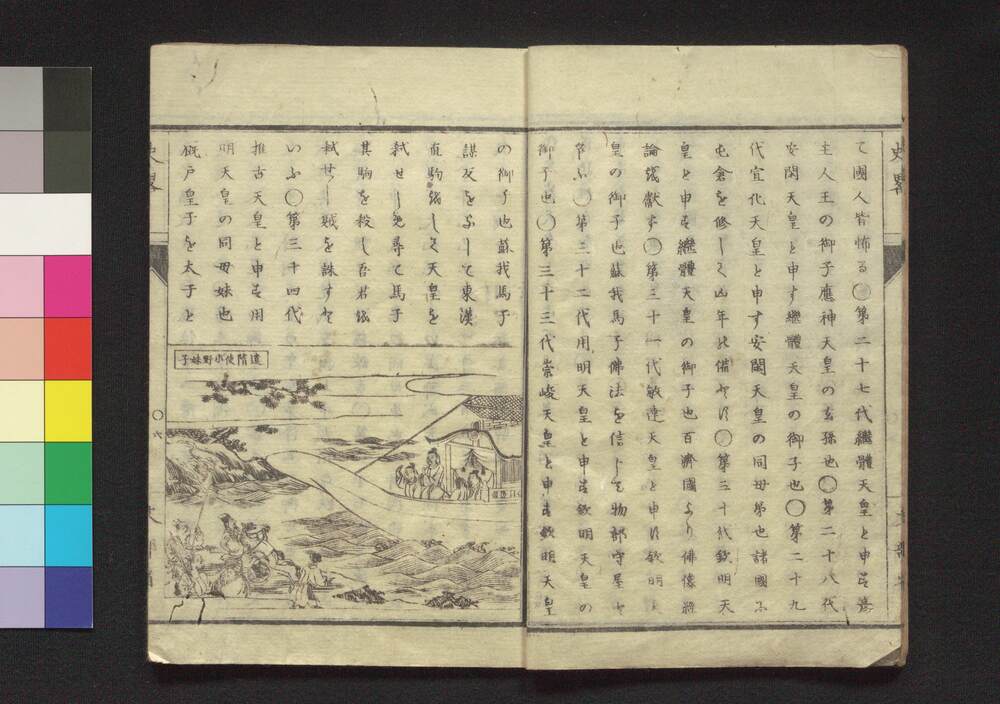 て國人皆怖る〇第二十七代繼體天皇と申す
主人王の御子應神天皇の玄孫也〇第二十八代
安閑天皇と申す繼體天皇の御子也〇第二十九
代宣化天皇と申す安閑天皇の同母弟也諸國に
屯倉を修して凶年の備とす〇第三十代欽明天
皇と申す繼體天皇の御子也百濟國より佛像經
論を獻す〇第三十一代敏達天皇と申す欽明
皇の御子也蘇我馬子佛法を信して物部守屋と
争ふ〇第三十二代用明天皇と申す欽明天皇の
御子也〇第三十三代崇峻天皇と申す欽明天皇
の御子也蘇我馬子
謀反をなして東漢
直駒をして天皇を
弑せしむ尋て馬子
其駒を殺し吾君を
弑せし賊を誅すと
いふ〇第三十四代
推古天皇と申す用
明天皇の同母妹也
厩戸皇子を太子と
遣隋使小野妹子
史畧
〇六